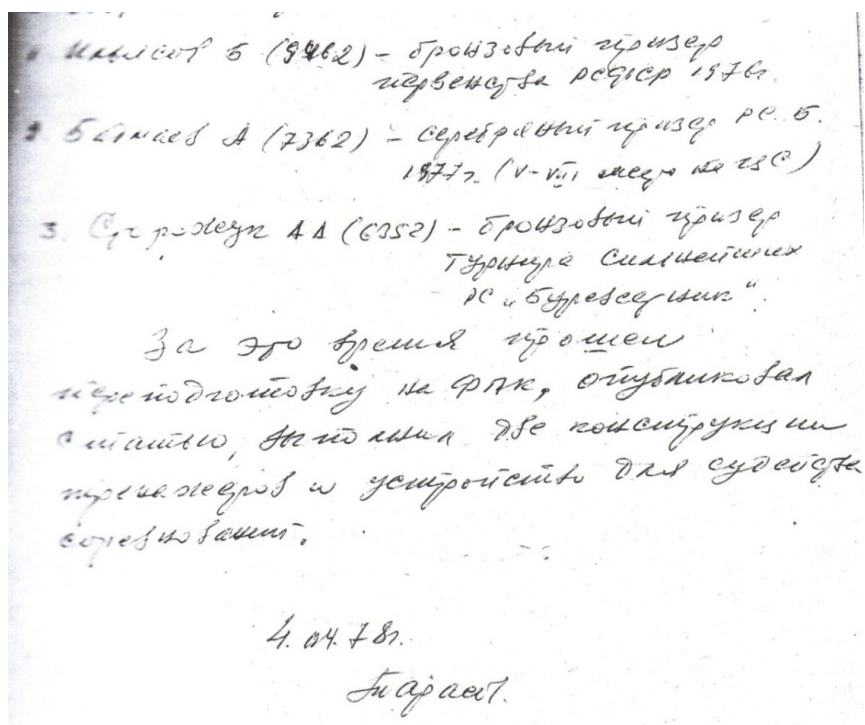 Ильясов Б (9462) – бронзовый призер
первенства РСФСР 1976г.
2. А (7362) – серебряный призер РС Б.
1977г. (V-VIII на ЦС)
3. АА (6352) – бронзовый призер
Турнира сильнейших
РС „Буревестник“.
За это время прошел
переподготовку на ФПК, опубликовал
статью, выполнил две конструкции
тренажеров и устройство для судейства
соревнований.
4.04.78г.